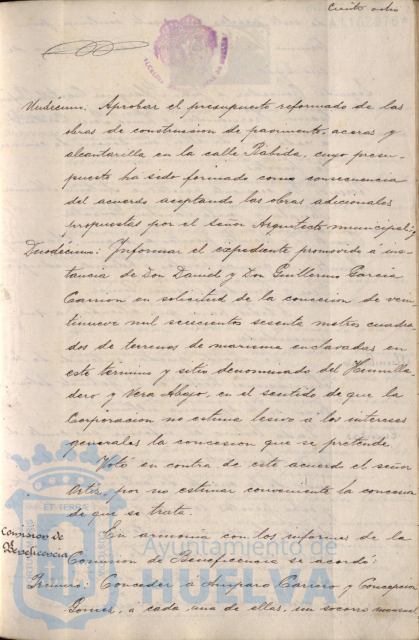 Ciento ocho
ALCALDIA DE HUELVA
Undécimo: Aprobar el presupuesto reformado de las
obras de construccion de pavimento, aceras y
alcantarilla en la calle Rábida, cuyo presu-
puesto ha sido formado como consecuencia
del acuerdo aceptando las obras adicionales
propuestas por el señor Arquitecto municipal; y
Duodécimo: Informar el expediente promovido á ins-
tancia de Don Daniel y Don Guillermo Garcia
Carrion en solicitud de la concesion de vein-
tinueve mil seiscientos sesenta metros cuadra-
dos de terrenos de marisma enclavados en
este término y sitio denominado del Humilla-
dero y Vera Abajo, en el sentido de que la
Corporacion no estima lesivo á los intereses
generales la concesion que se pretende.
Votó en contra de este acuerdo el señor
por no estimar conveniente la concesion
de que se trata.
Comision de
Beneficencia
En armonia con los informes de la
Comision de Beneficencia se acordó:
Primero: Conceder á Amparo Carrero y Concepcion
Gomez, á cada una de ellas, un socorro mensual
Ayuntamiento de
HUELVA